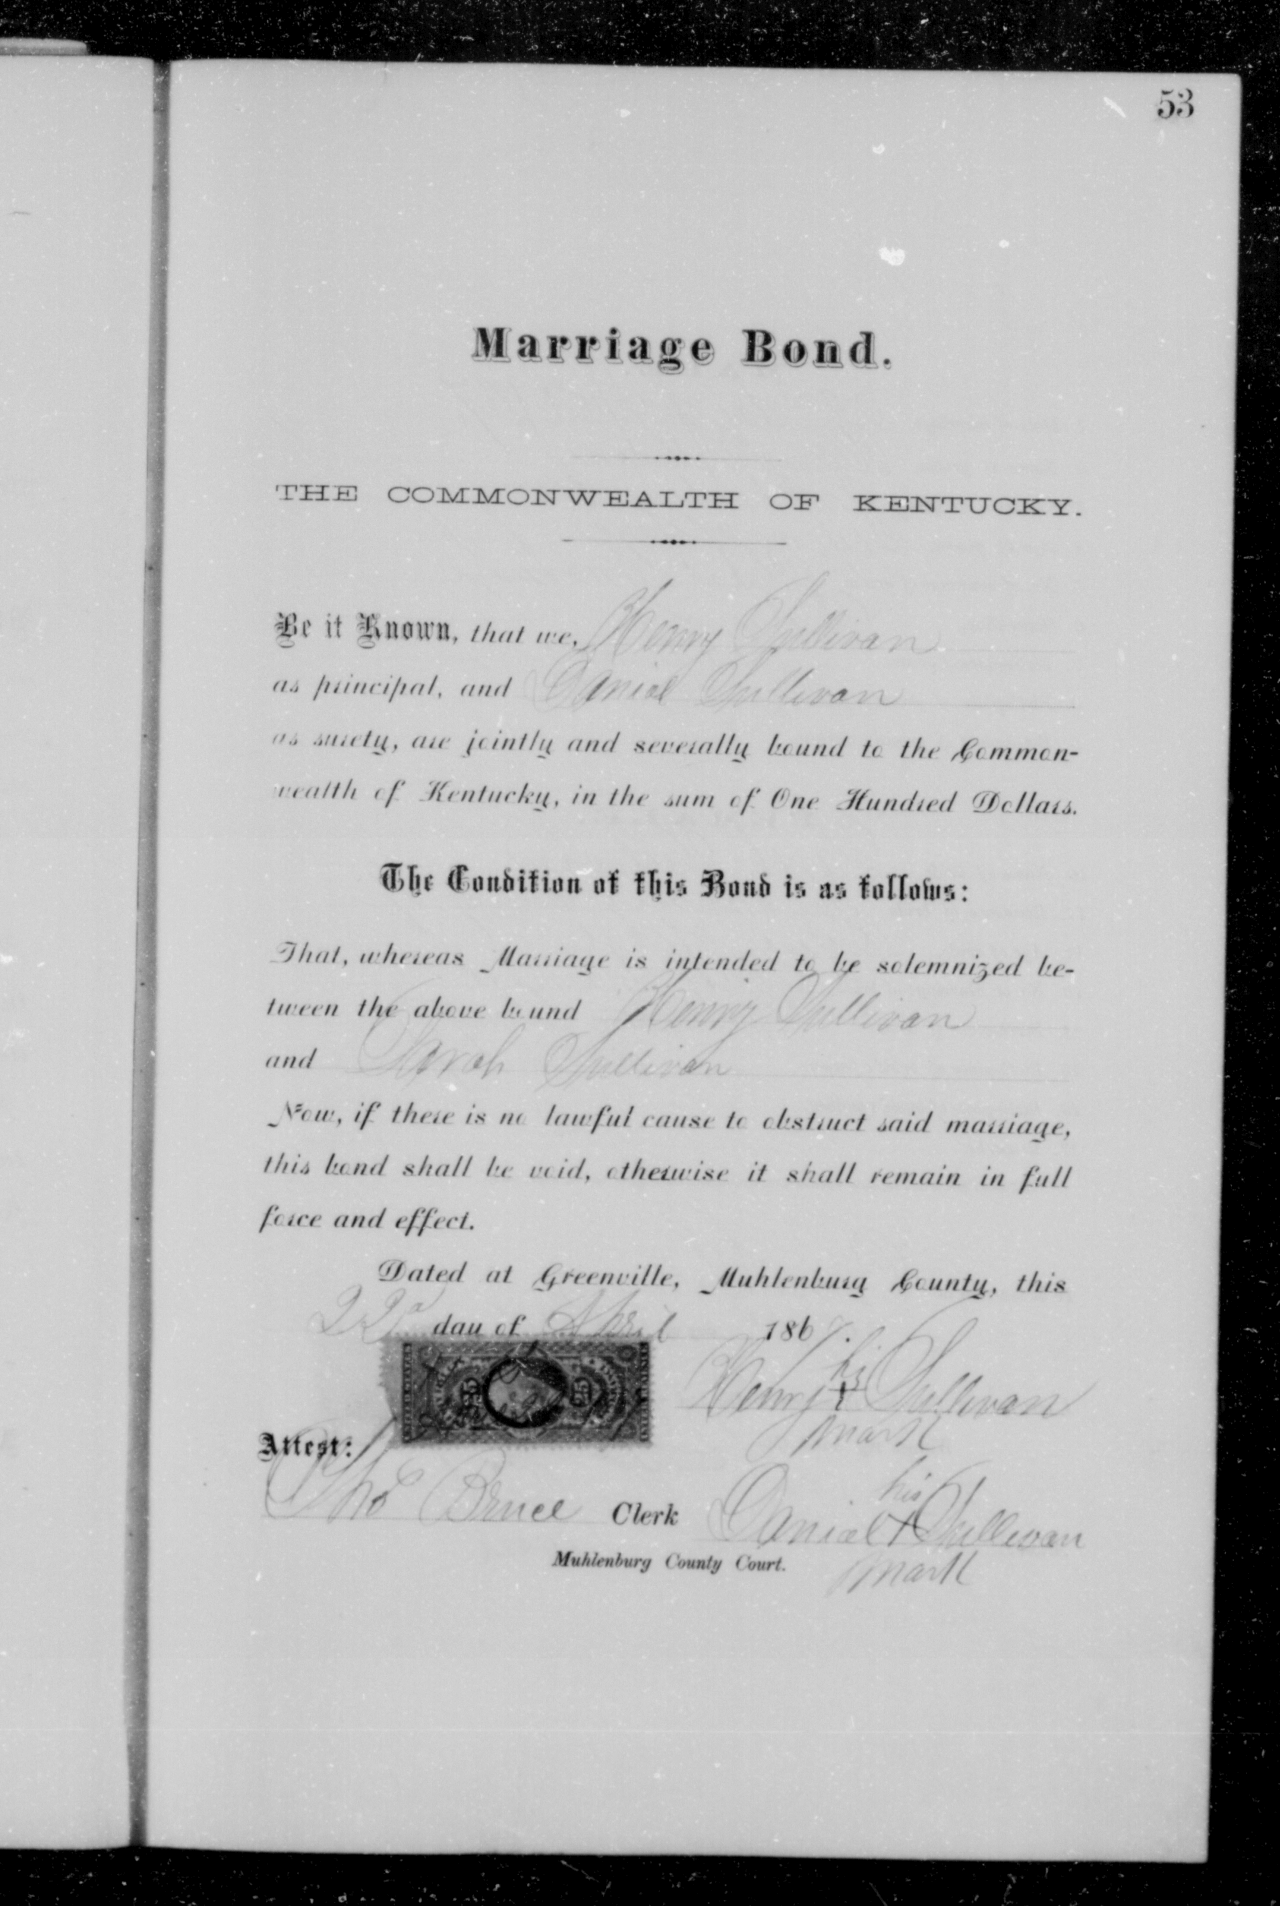 53
Marriage Bond.
THE COMMONWEALTH OF KENTUCKY.
Be it Known, that we, Henry Sullivan
as principal, and Daniel Sullivan
as surety, are jointly and severally bound to the Common-
wealth of Kentucky, in the sum of One Hundred Dollars.
The Condition of this Bond is as follows:
That, whereas Marriage is intended to be solemnized be-
tween the above bound Henry Sullivan
and Sarah Sullivan
Now, if there is no lawful cause to obstruct said marriage,
this bond shall be void, otherwise it shall remain in full
force and effect.
Dated at Greenville, Muhlenburg County, this
22d day of April 186
his
Henry + Sullivan
mark
Attest:
Thos Bruce Clerk
Muhlenburg County Court.
his
Daniel + Sullivan
mark